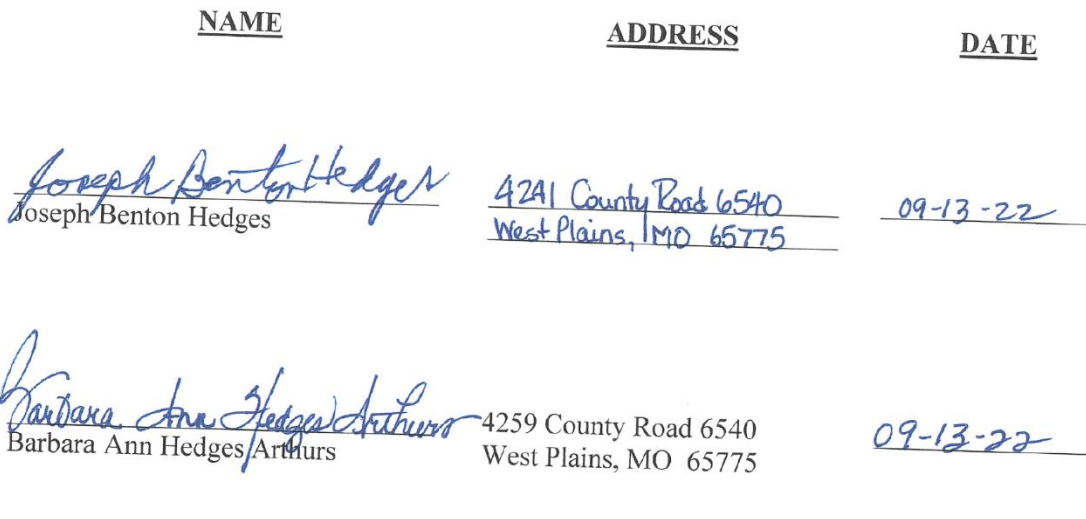 NAME
ADDRESS
DATE
Joseph Benton Hedges
Joseph Benton Hedges
4241 County Road 6540
West Plains, MO 65775
09-13-22
Barbara Ann Hedges Arthurs
Barbara Ann Hedges Arthurs
4259 County Road 6540
West Plains, MO 65775
09-13-22